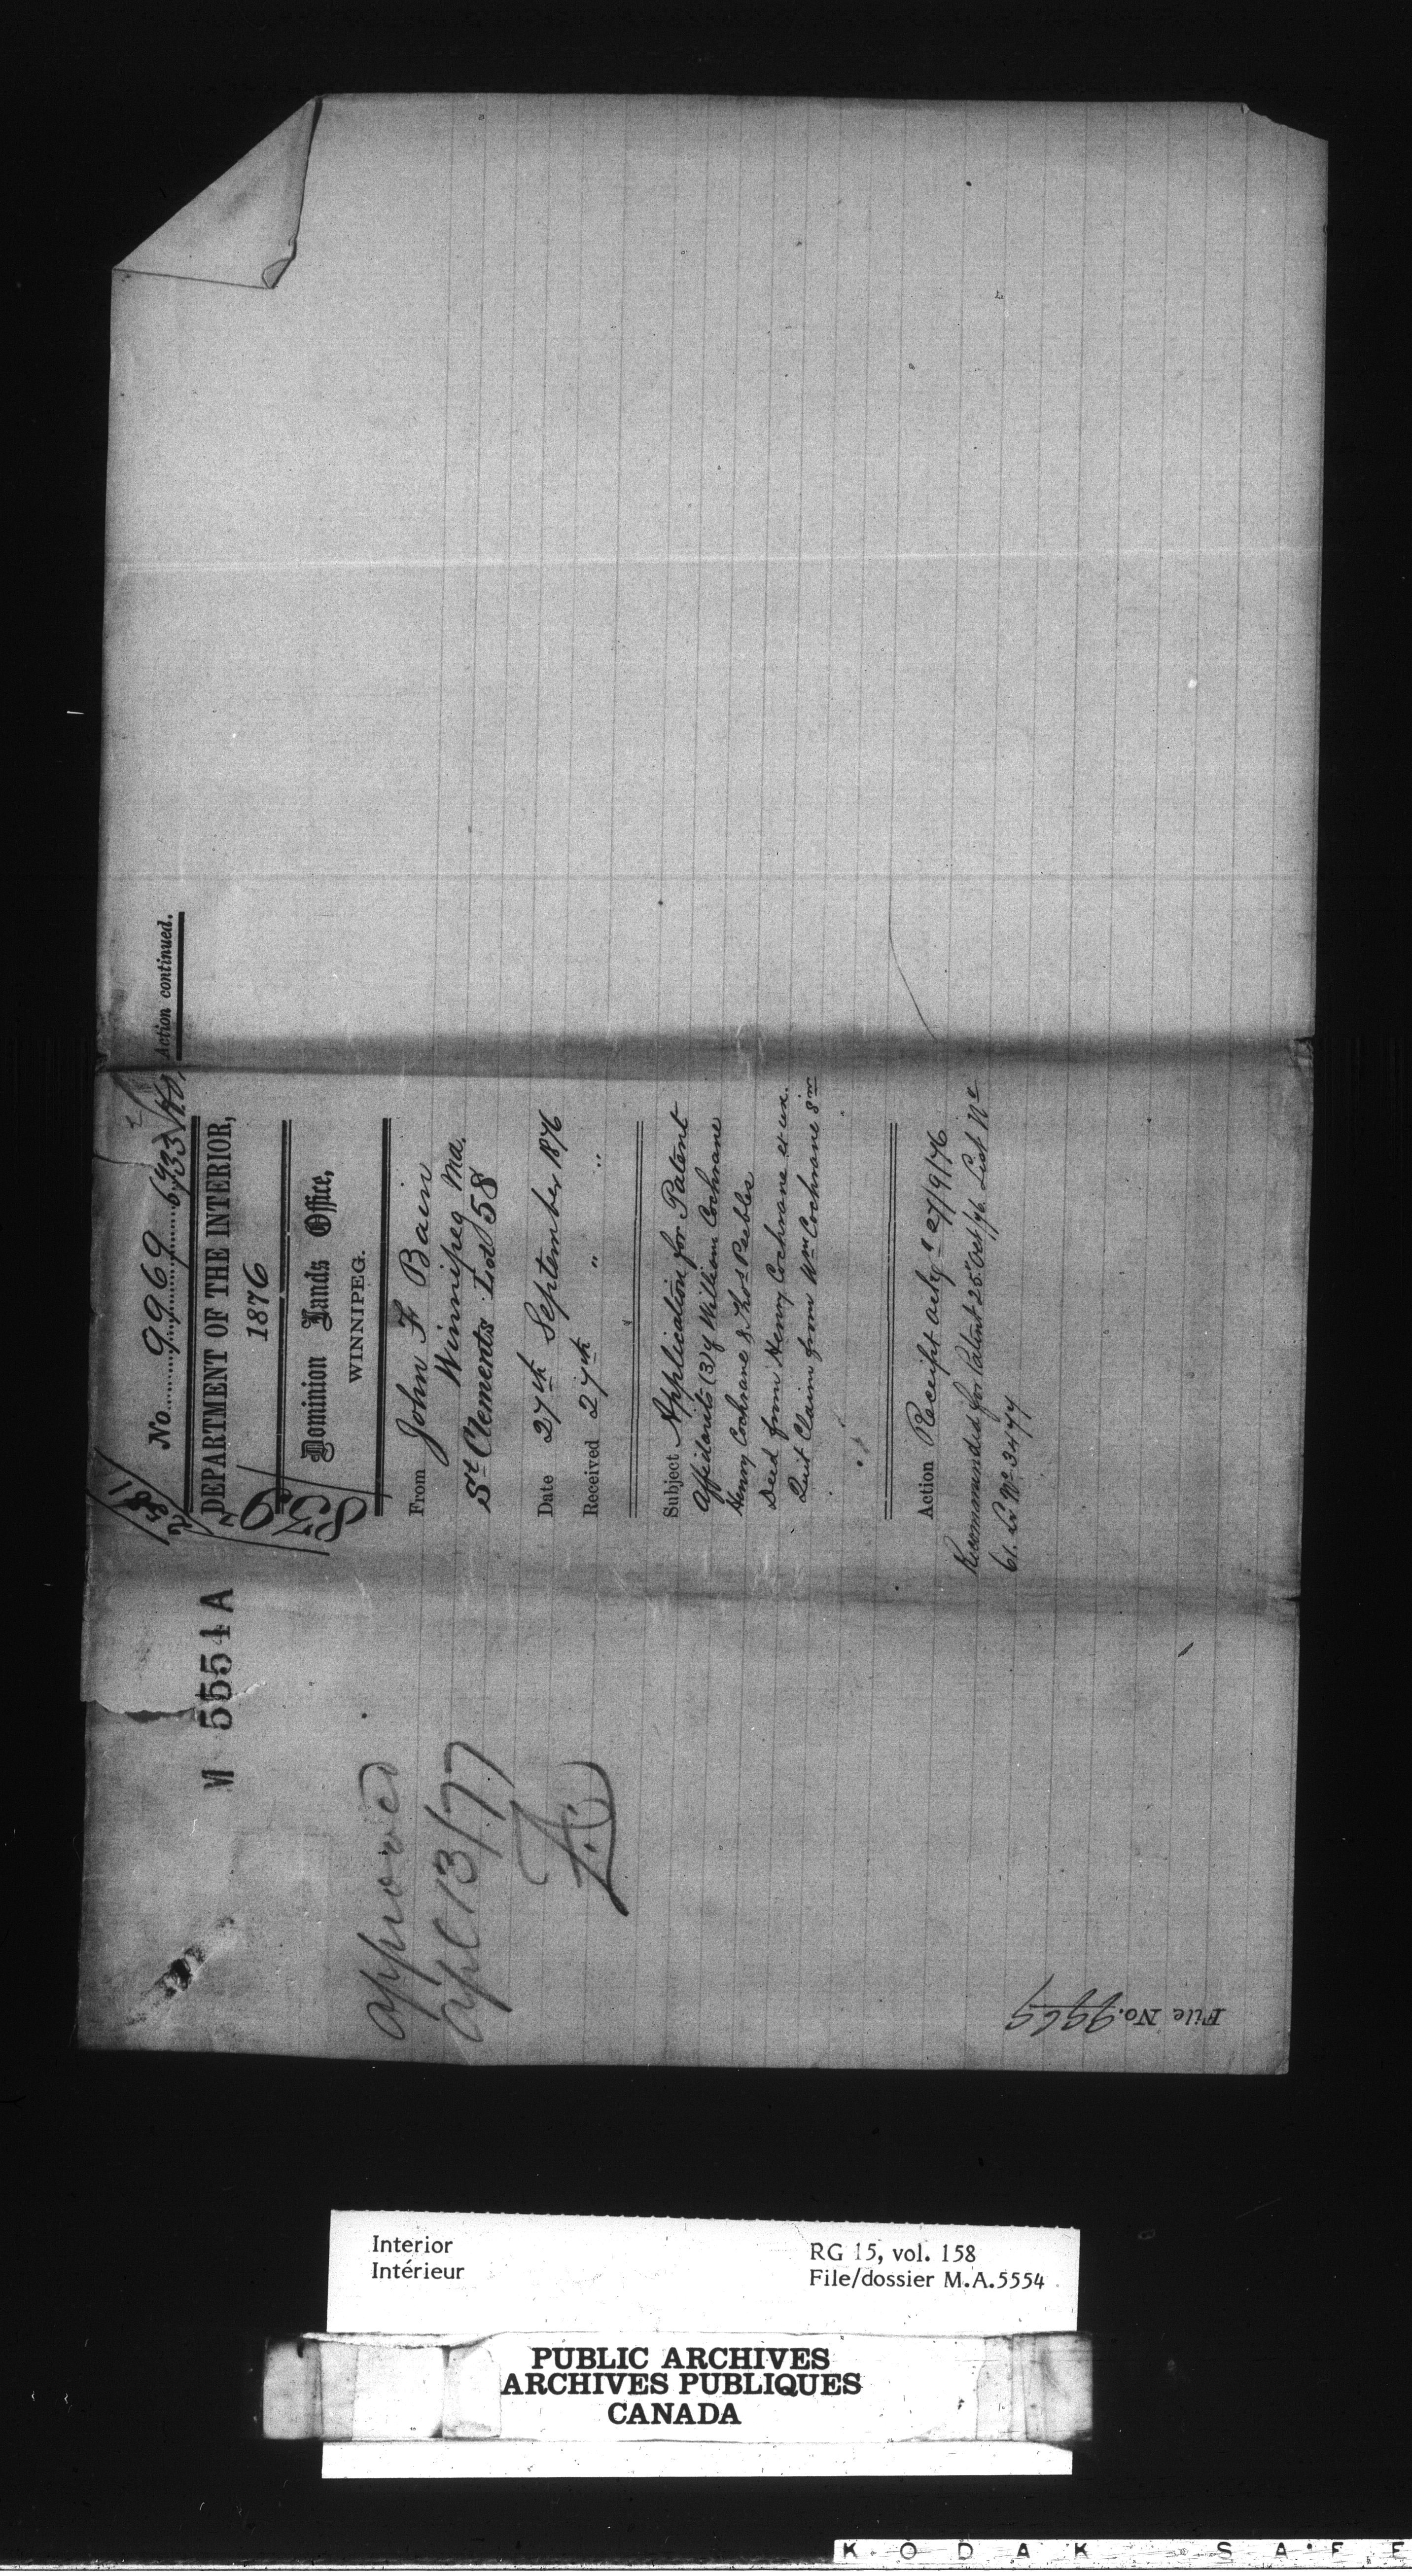 Action continued.
No. 9969
DEPARTMENT OF THE INTERIOR,
1876
Dominion Lands Office,
WINNIPEG.
839
From John F Bain
Winnipeg Ma.
St Clements Lot 58
Date 27th September 1876
Received 27th " "
Subject Application for Patent
Affidavits (3) of William Cochrane
Henry Cochrane & Thos Peebles
Deed from Henry Cochrane et ux.
Quit Claim from Wm Cochrane Snr
Action Receipt ackgd 27/9/76
Recommended for Patent 25" Oct /76. List No
61. Lr No 3477
M 5554 A
approved
apl 13/77
File No. 9969
Interior
Intérieur
RG 15, vol. 158
File/dossier M.A.5554
PUBLIC ARCHIVES
ARCHIVES PUBLIQUES
CANADA
KODAK SAFE